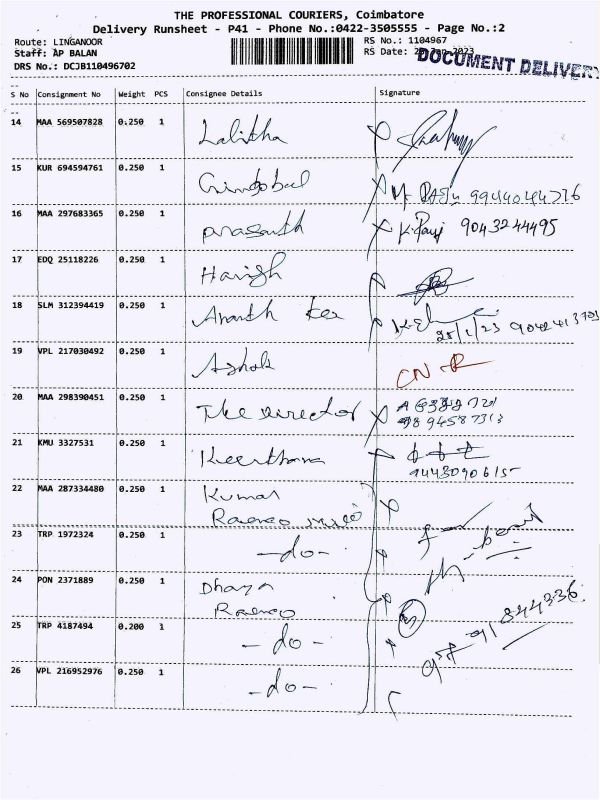 THE PROFESSIONAL COURIERS, Coimbatore
Delivery Runsheet - P41 - Phone No.:0422-3505555 - Page No.:2
Route: LINGANOOR
RS No.: 1104967
Staff: AP BALAN
RS Date: 2023
DRS No.: DCJB110496702
DOCUMENT DELIVERY
S No Consignment No Weight PCS Consignee Details Signature
14 MAA 569507828 0.250 1 Lalitha
15 KUR 694594761 0.250 1 9944044776
16 MAA 297683365 0.250 1 prasanth 9043244495
17 EDQ 25118226 0.250 1 Harish
18 SLM 312394419 0.250 1 Ananth
25/1/23
19 VPL 217030492 0.250 1 Ashok
20 MAA 298390451 0.250 1 The Director
9894587313
21 KMU 3327531 0.250 1 Keerthana
9443090615
22 MAA 287334480 0.250 1 Kumar
23 TRP 1972324 0.250 1 -do-
24 PON 2371889 0.250 1
844336
25 TRP 4187494 0.200 1 -do-
26 VPL 216952976 0.250 1 -do-